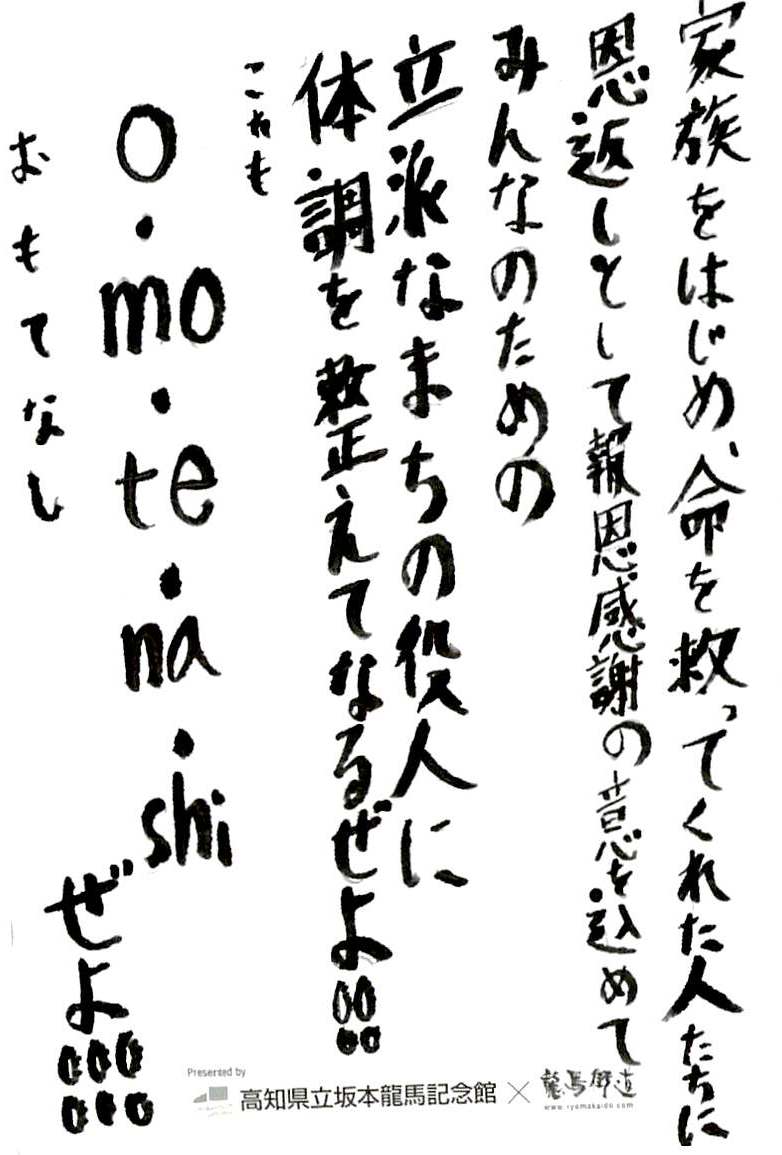 家族をはじめ、命を救ってくれた人たちに
恩返しとして報恩感謝の意を込めて
みんなのための
立派なまちの役人に
体調を整えてなるぜよ!!
これも
o・mo・te・na・shi
ぜよ!!!
おもてなし
Presented by
高知県立坂本龍馬記念館×龍馬街道
www.ryomakaido.com